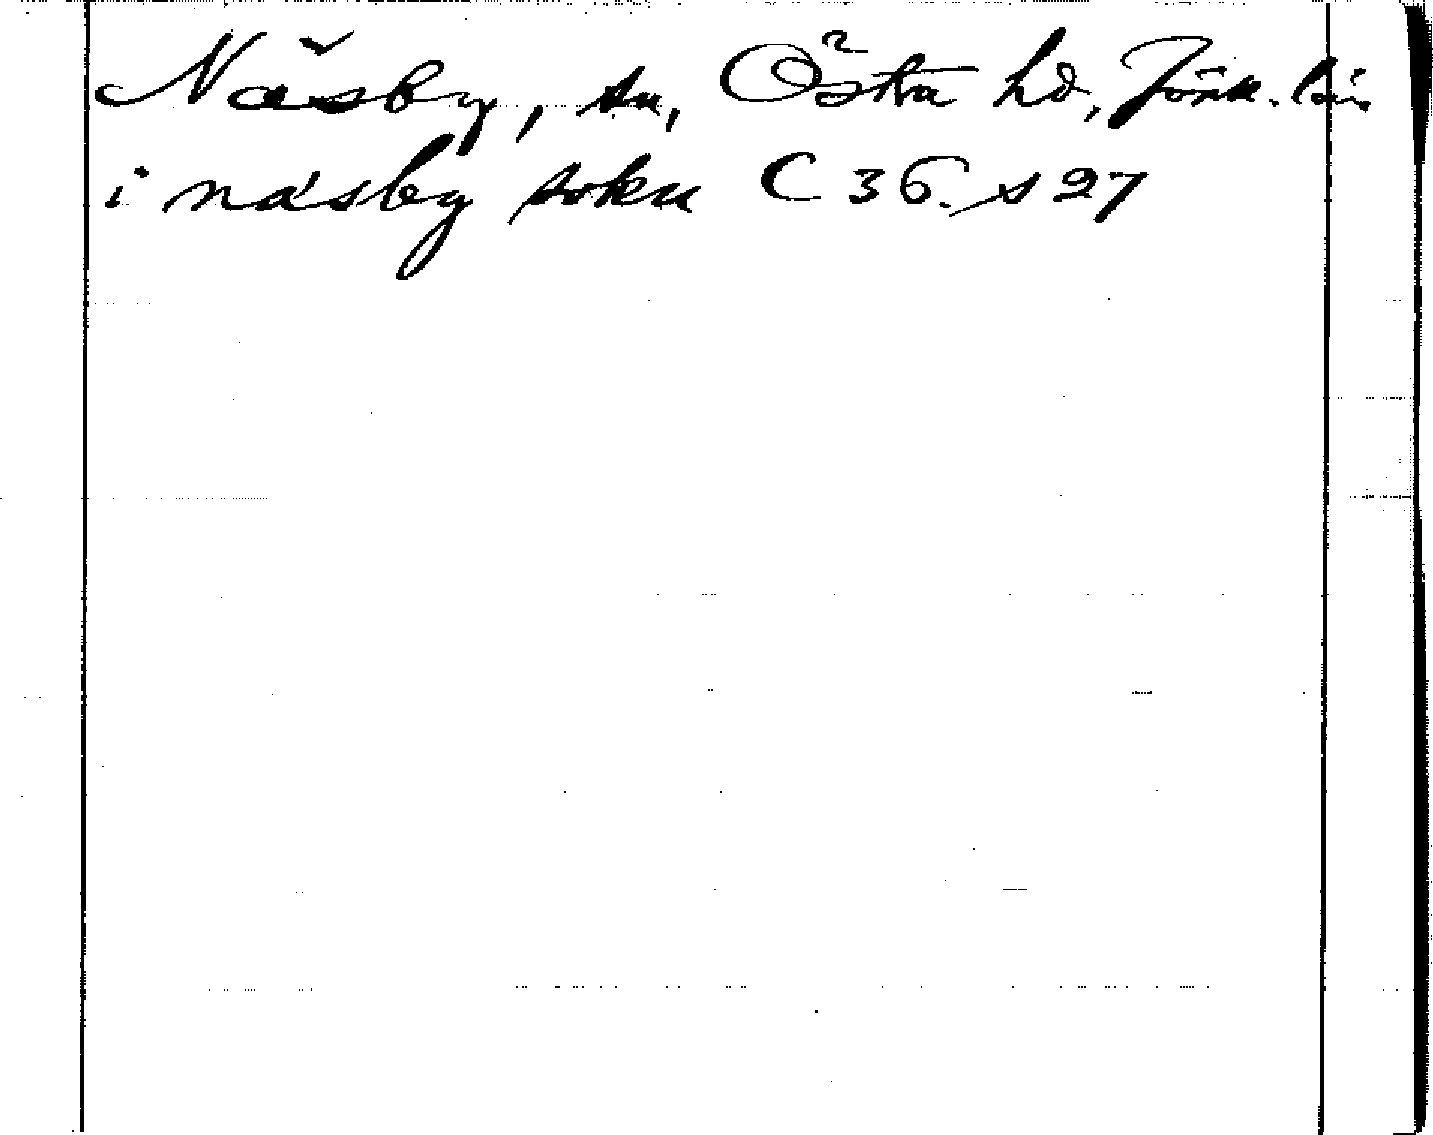 Näsby, sn, Östra hd, Jönk. län
i näsby sokn C 36. s 27